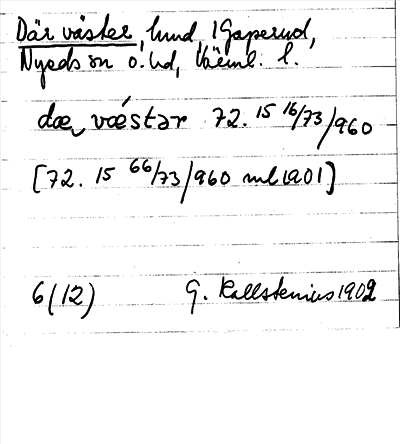 Där väster, lund, i Gaperud,
Nyeds sn ö. hd, Värml. l.
dæ vǽstər 72. 15 16/73/960
[72. 15 66/73/960 ml 1901]
6(12) G. Kallstenius 1902